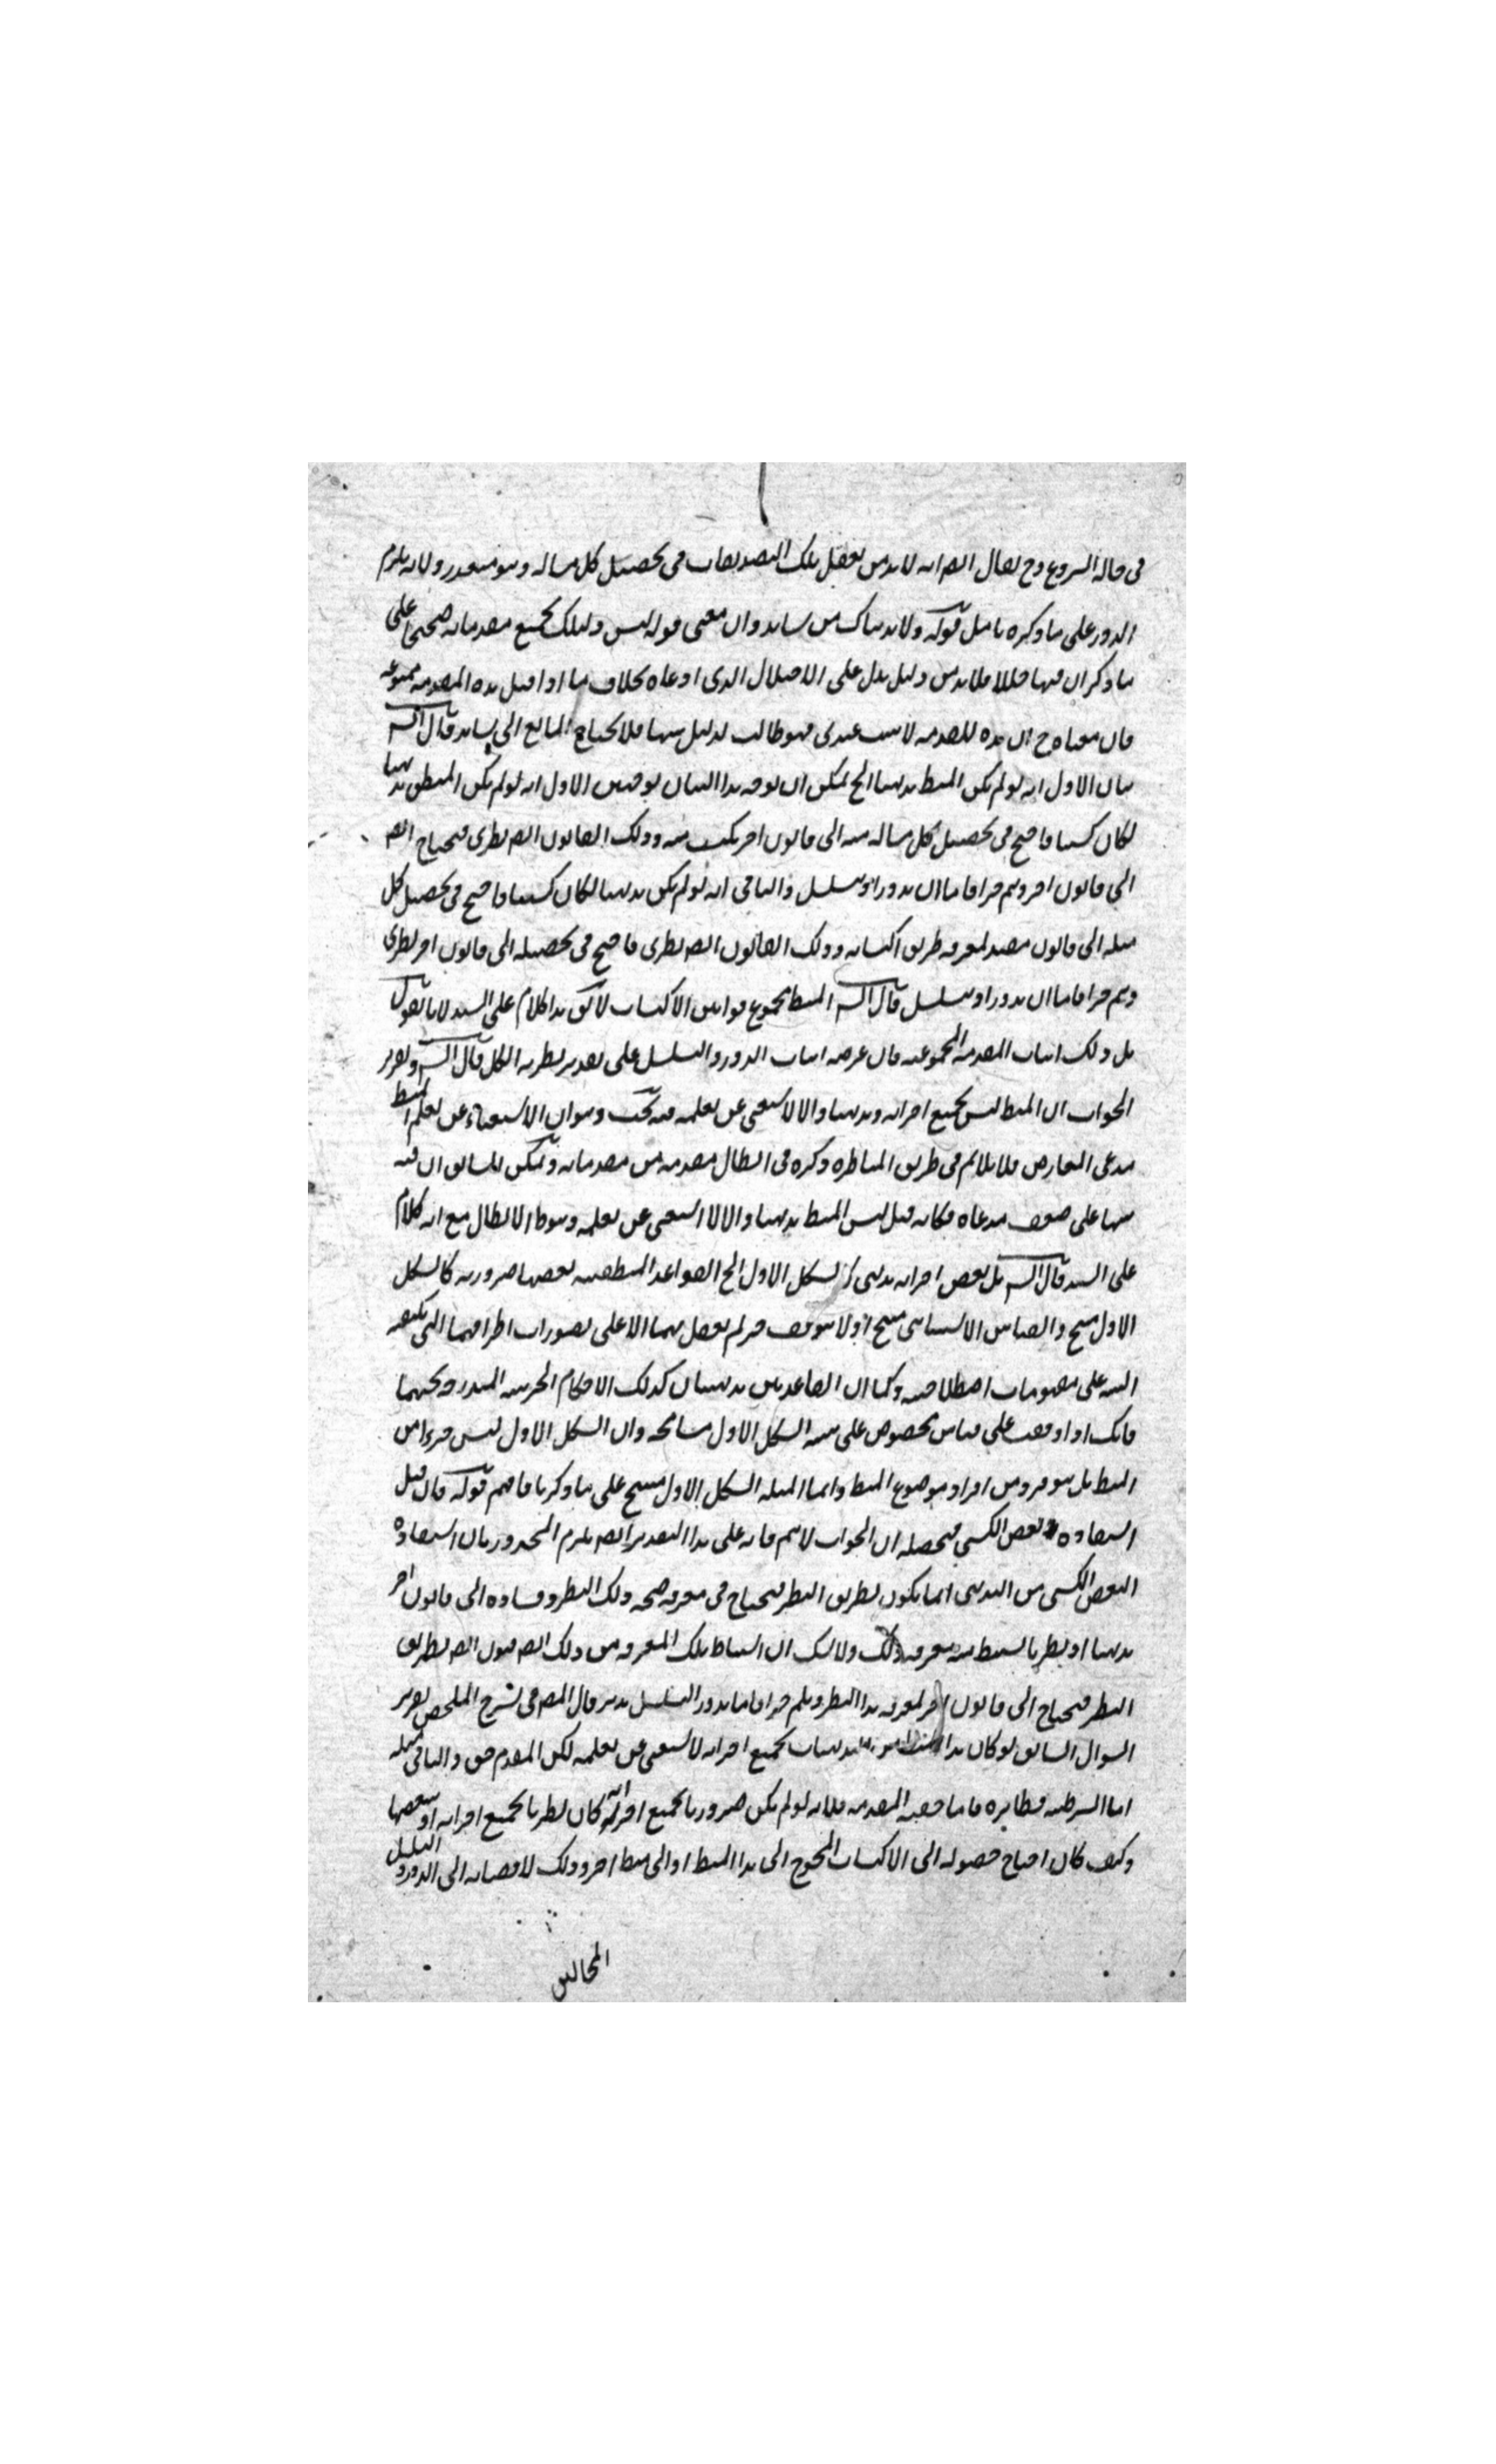 فى حالة الشروع وح يقال ايضا انه لا بد من تعقل تلك التصديقات فى تحصيل كل مسالة وهو متعذر ولانه يلزم
الدور على ما ذكره تامل قوله ولا بد هناك من شاهد وان معنى قوله ليس دليلك بجميع مقدماته صحيحا على
ما ذكر ان فيها خللا فلا بد من دليل يدل على الاختلال الذى ادعاه بخلاف ما اذا قيل هذه المقدمة ممنوعة
فان معناه ح ان هذه المقدمة لا ثبت عندى فهو طالب لدليل منها فلا يحتاج المانع الى شاهد قال الشه
بيان الاول انه لو لم يكن المنط بديهيا الخ يمكن ان يوجه هذا البيان بوجهين الاول انه لو لم يكن المنطق بديهيا
لكان كسبيا فاحتيج فى تحصيل كل مسالة منه الى قانون اخر يكتسب منه وذلك القانون ايضا نظرى فيحتاج ايضا
الى قانون اخر وهلم جرا فاما ان يدور او يتسلسل والثانى انه لو لم يكن بديهيا لكان كسبيا فاحتيج فى تحصيل كل
مسئلة الى قانون مفيد لمعرفة طريق اكتسابه وذلك القانون ايضا نظرى فاحتيج فى تحصيله الى قانون اخر نظرى
وهلم جرا فاما ان يدور او يتسلسل قال الشه المنط مجموع قوانين الاكتساب لا يق هذا كلام على السند لانا نقول
بل ذلك اثبات المقدمة الممنوعة فان غرضه اثبات الدور والتسلسل على تقدير نظرية الكل قال الشه وتقرير
الجواب ان المنط ليس بجميع اجزائه بديهيا والا لاستغنى عن تعلمه فيه بحث وهو ان الاستغناء عن تعلم المنط
مدعى المعارض فلا يلائم فى طريق المناظرة ذكره فى ابطال مقدمة من مقدماته ويمكن ان يق ان فيه
تنبيها على ضعف مدعاه فكانه قيل ليس المنط بديهيا والا لاستغنى عن تعلمه وهو ظ الابطال مع انه كلام
على السند قال الشه بل بعض اجزائه بديهى كالشكل الاول الخ القواعد المنطقية بعضها ضرورية كالشكل
الاول منتج والقياس الاستثنائى منتج اذ لا يتوقف جزم العقل بهما الا على تصورات اطرافهما التى يكفيه
التنبيه على مفهومات اصطلاحية وكما ان القاعدتين بديهيتان كذلك الاحكام الجزئية المندرجة تحتهما
فانك اذا وقفت على قياس مخصوص على هيئة الشكل الاول مسامحة وان الشكل الاول ليس جزءا من
المنط بل هو فرد من افراد موضوع المنط وانما المسئلة الشكل الاول منتج على ما ذكرنا فافهم قوله فان قيل
استفادة بعض الكسبى فمحصله ان الجواب لا يتم فانه على هذا التقدير ايضا يلزم المحذور بان استفادة
البعض الكسبى من البديهى انما يكون بطريق النظر فيحتاج فى معرفة صحة ذلك النظر وفساده الى قانون اخر
بديهيا او نظريا يستنبط منه معرفة ذلك ولا شك ان استنباط تلك المعرفة من ذلك القانون ايضا بطريق
النظر فيحتاج الى قانون اخر لمعرفة هذا النظر وهلم جرا فاما يدور او يتسلسل تدبر قال المص فى شرح الملخص تقرير
السوال السابق لو كان هذا بديهيات بجميع اجزائه لاستغنى عن تعلمه لكن المقدم حق والتالى مثله
اما الشرطية فظاهرة فاما حقية المقدم فلانه لو لم يكن ضروريا بجميع اجزائه كان نظريا بجميع اجزائه او ببعضها
وكيف كان احتاج حصوله الى الاكتساب المحوج الى هذا المنط او الى منط اخر وذلك لافضائه الى الدور والتسلسل
المحالين